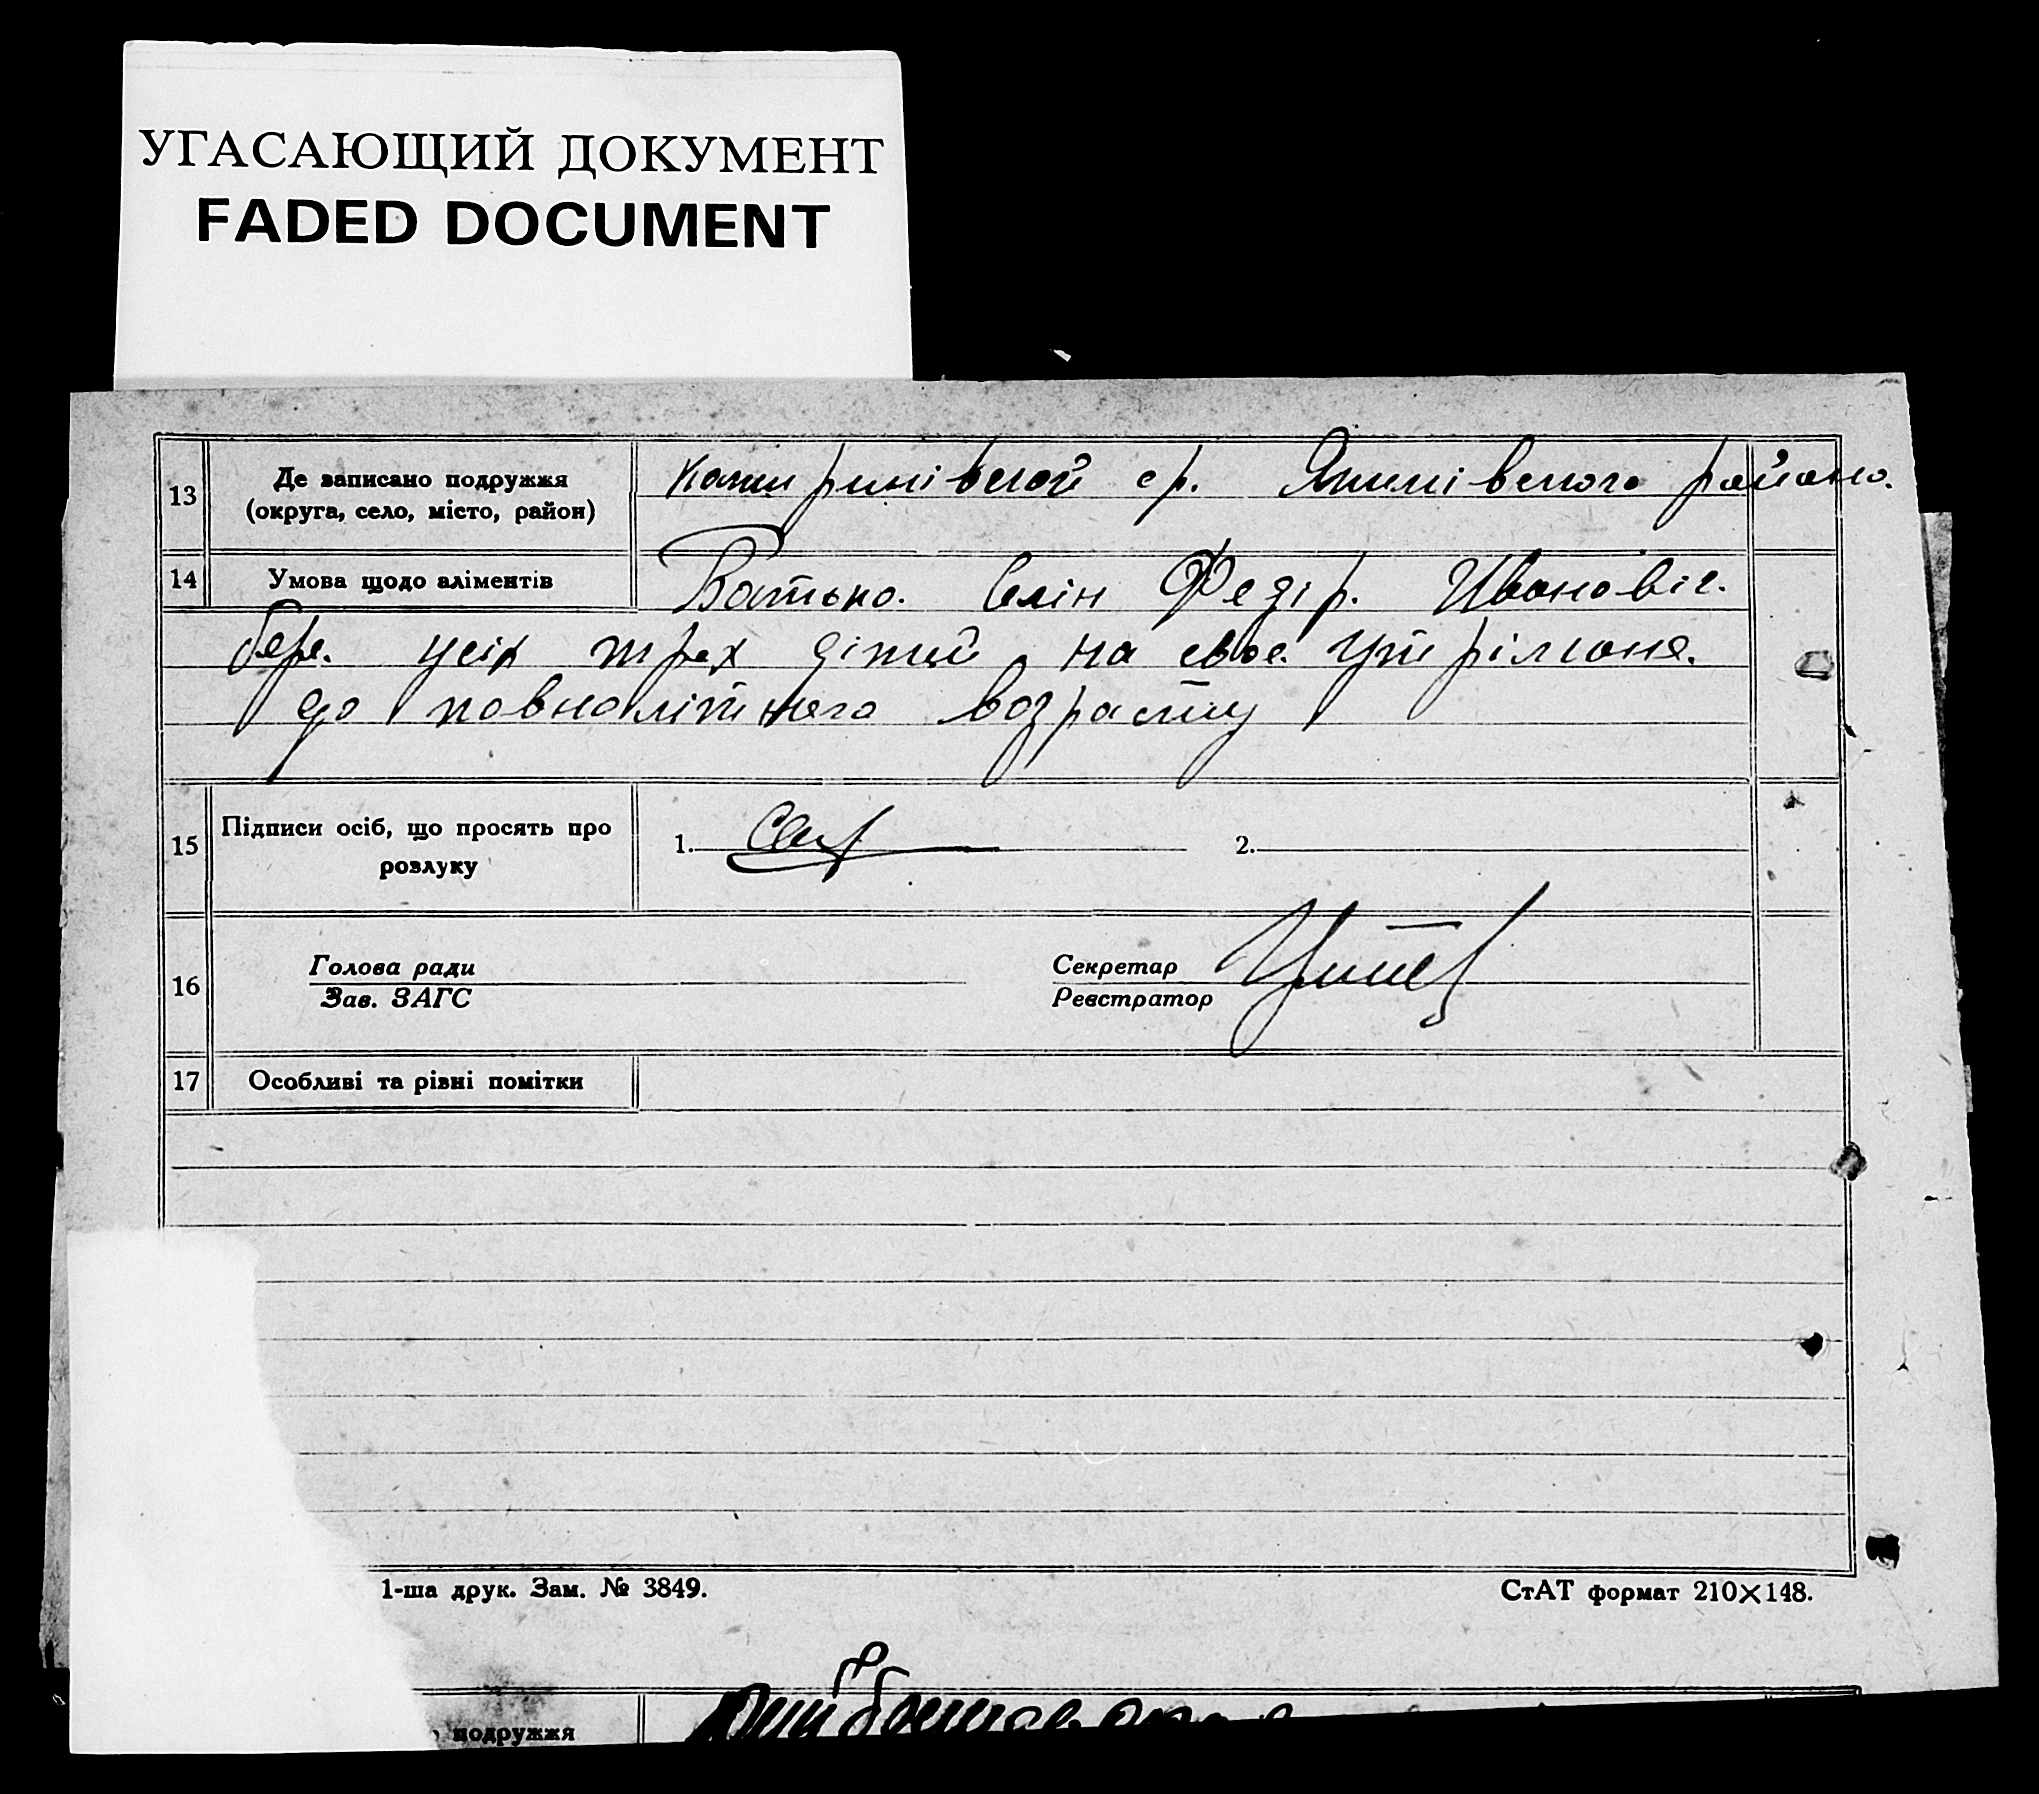 УГАСАЮЩИЙ ДОКУМЕНТ
FADED DOCUMENT
13
Де записано подружжя
(округа, село, місто, район)
ср. району.
14
Умова щодо аліментів
Батько. Єлін Федір. Ивановіч.
бере. усіх трех дітей на своє. утрімоне.
до повнолітнего возрасту
15
Підписи осіб, що просять про
розлуку
1.
2.
16
Голова ради
Зав. ЗАГС
Секретар
Реєстратор
17
Особливі та різні помітки
1-ша друк. Зам. № 3849.
СтАТ формат 210×148.
подружжя